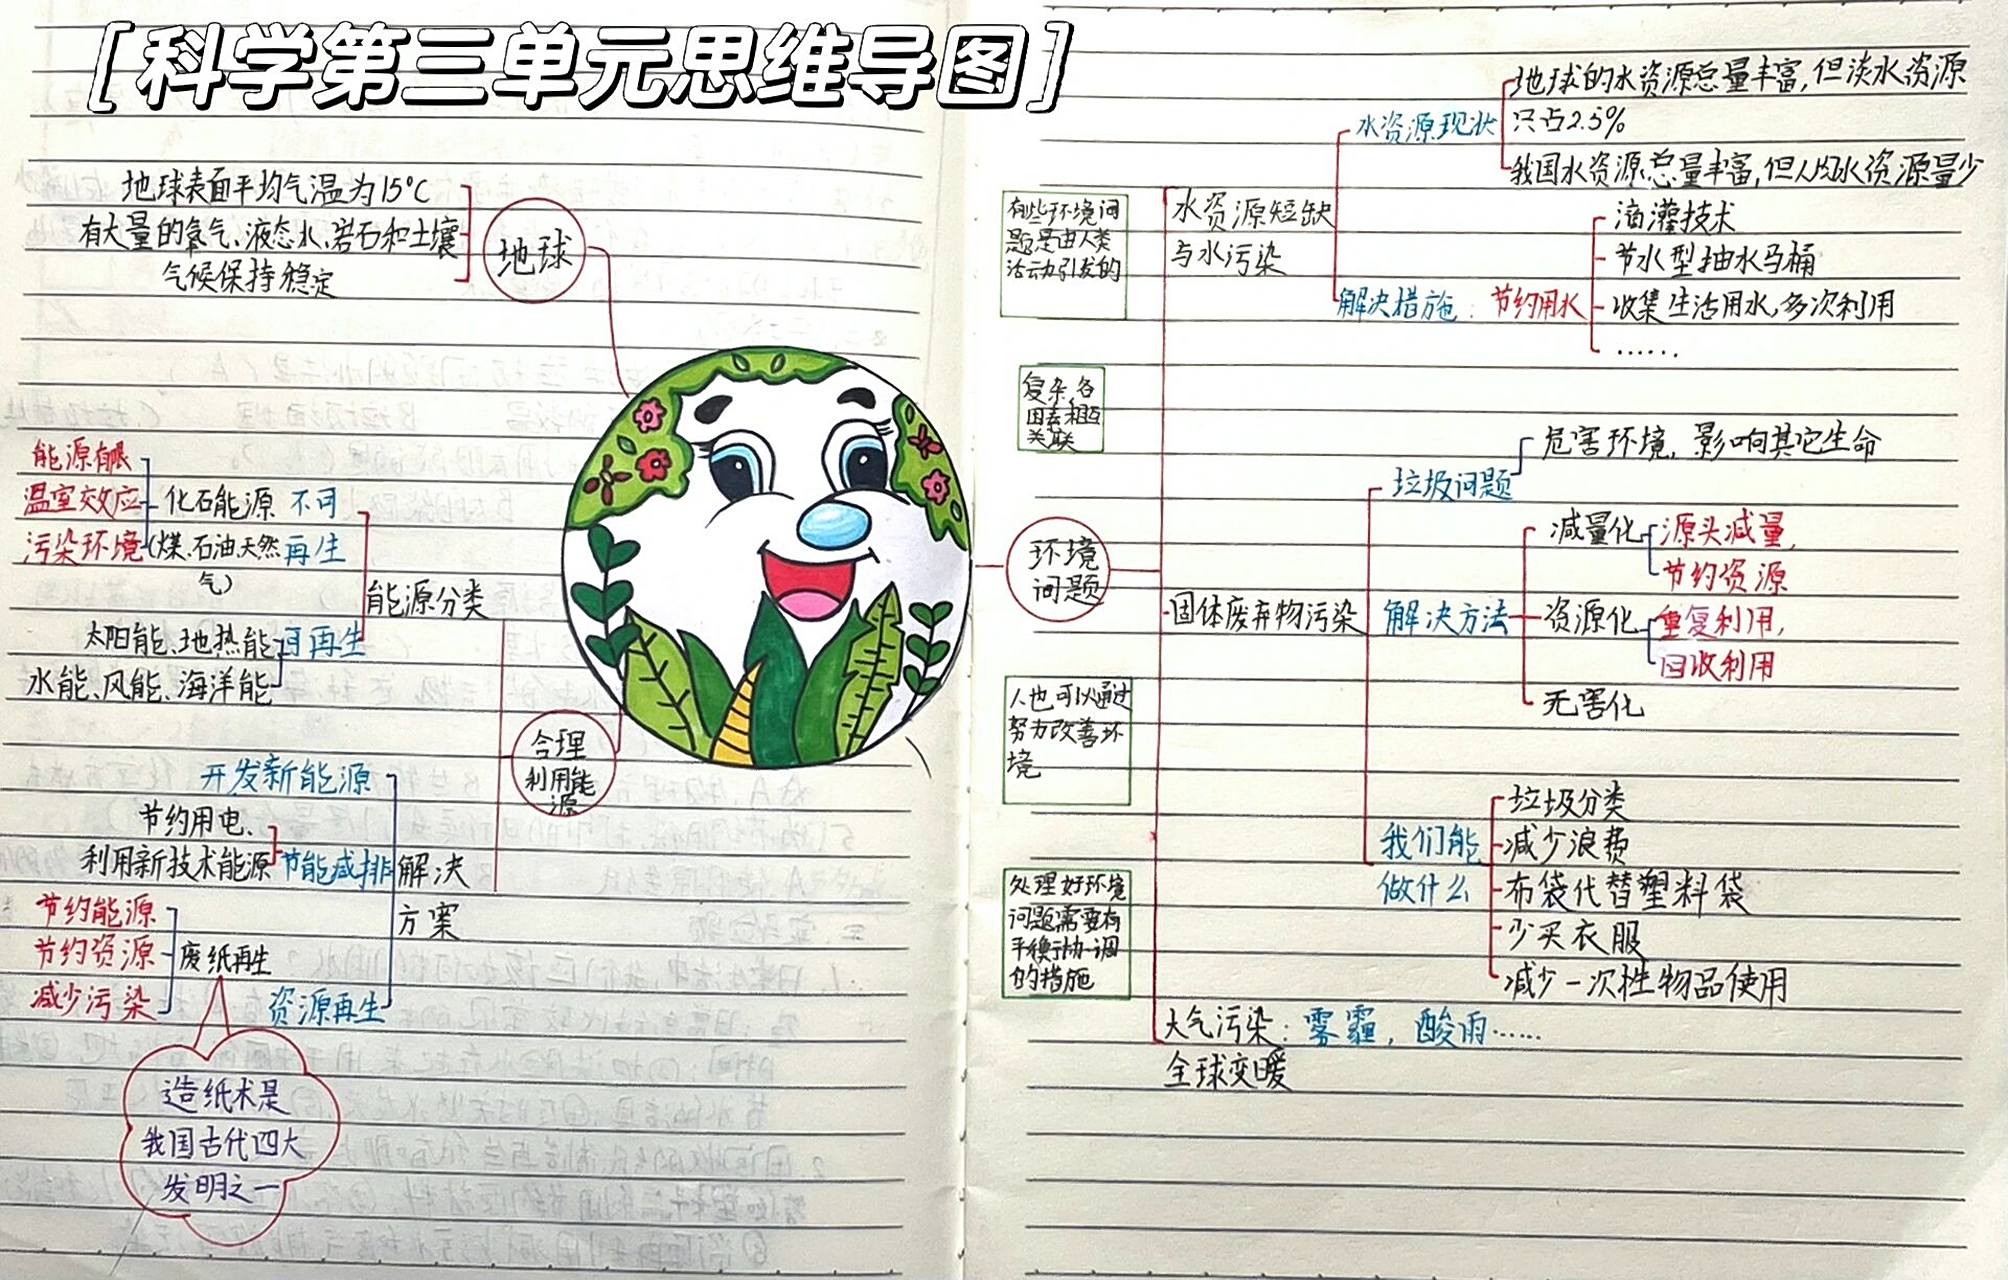 [科学第三单元思维导图]
地球表面平均气温为15°C
有大量的氧气、液态水、岩石和土壤
气候保持稳定
地球
能源有限
温室效应
污染环境
化石能源
(煤、石油、天然
气)
不可
再生
能源分类
太阳能、地热能
水能、风能、海洋能
可再生
合理
利用能
源
开发新能源
节约用电、
利用新技术能源
节能减排
解决
方案
节约能源
节约资源
减少污染
废纸再生
资源再生
造纸术是
我国古代四大
发明之一
有些环境问
题是由人类
活动引发的
复杂,各
因素相互
关联
环境
问题
人也可以通过
努力改善环
境
处理好环境
问题需要有
平衡协调
的措施
水资源短缺
与水污染
水资源现状
地球的水资源总量丰富,但淡水资源
只占2.5%
我国水资源总量丰富,但人均水资源量少
解决措施:节约用水
滴灌技术
节水型抽水马桶
收集生活用水,多次利用
……
固体废弃物污染
垃圾问题
危害环境,影响其它生命
解决方法
减量化
源头减量,
节约资源
资源化
重复利用,
回收利用
无害化
我们能
做什么
垃圾分类
减少浪费
布袋代替塑料袋
少买衣服
减少一次性物品使用
大气污染:雾霾,酸雨……
全球变暖